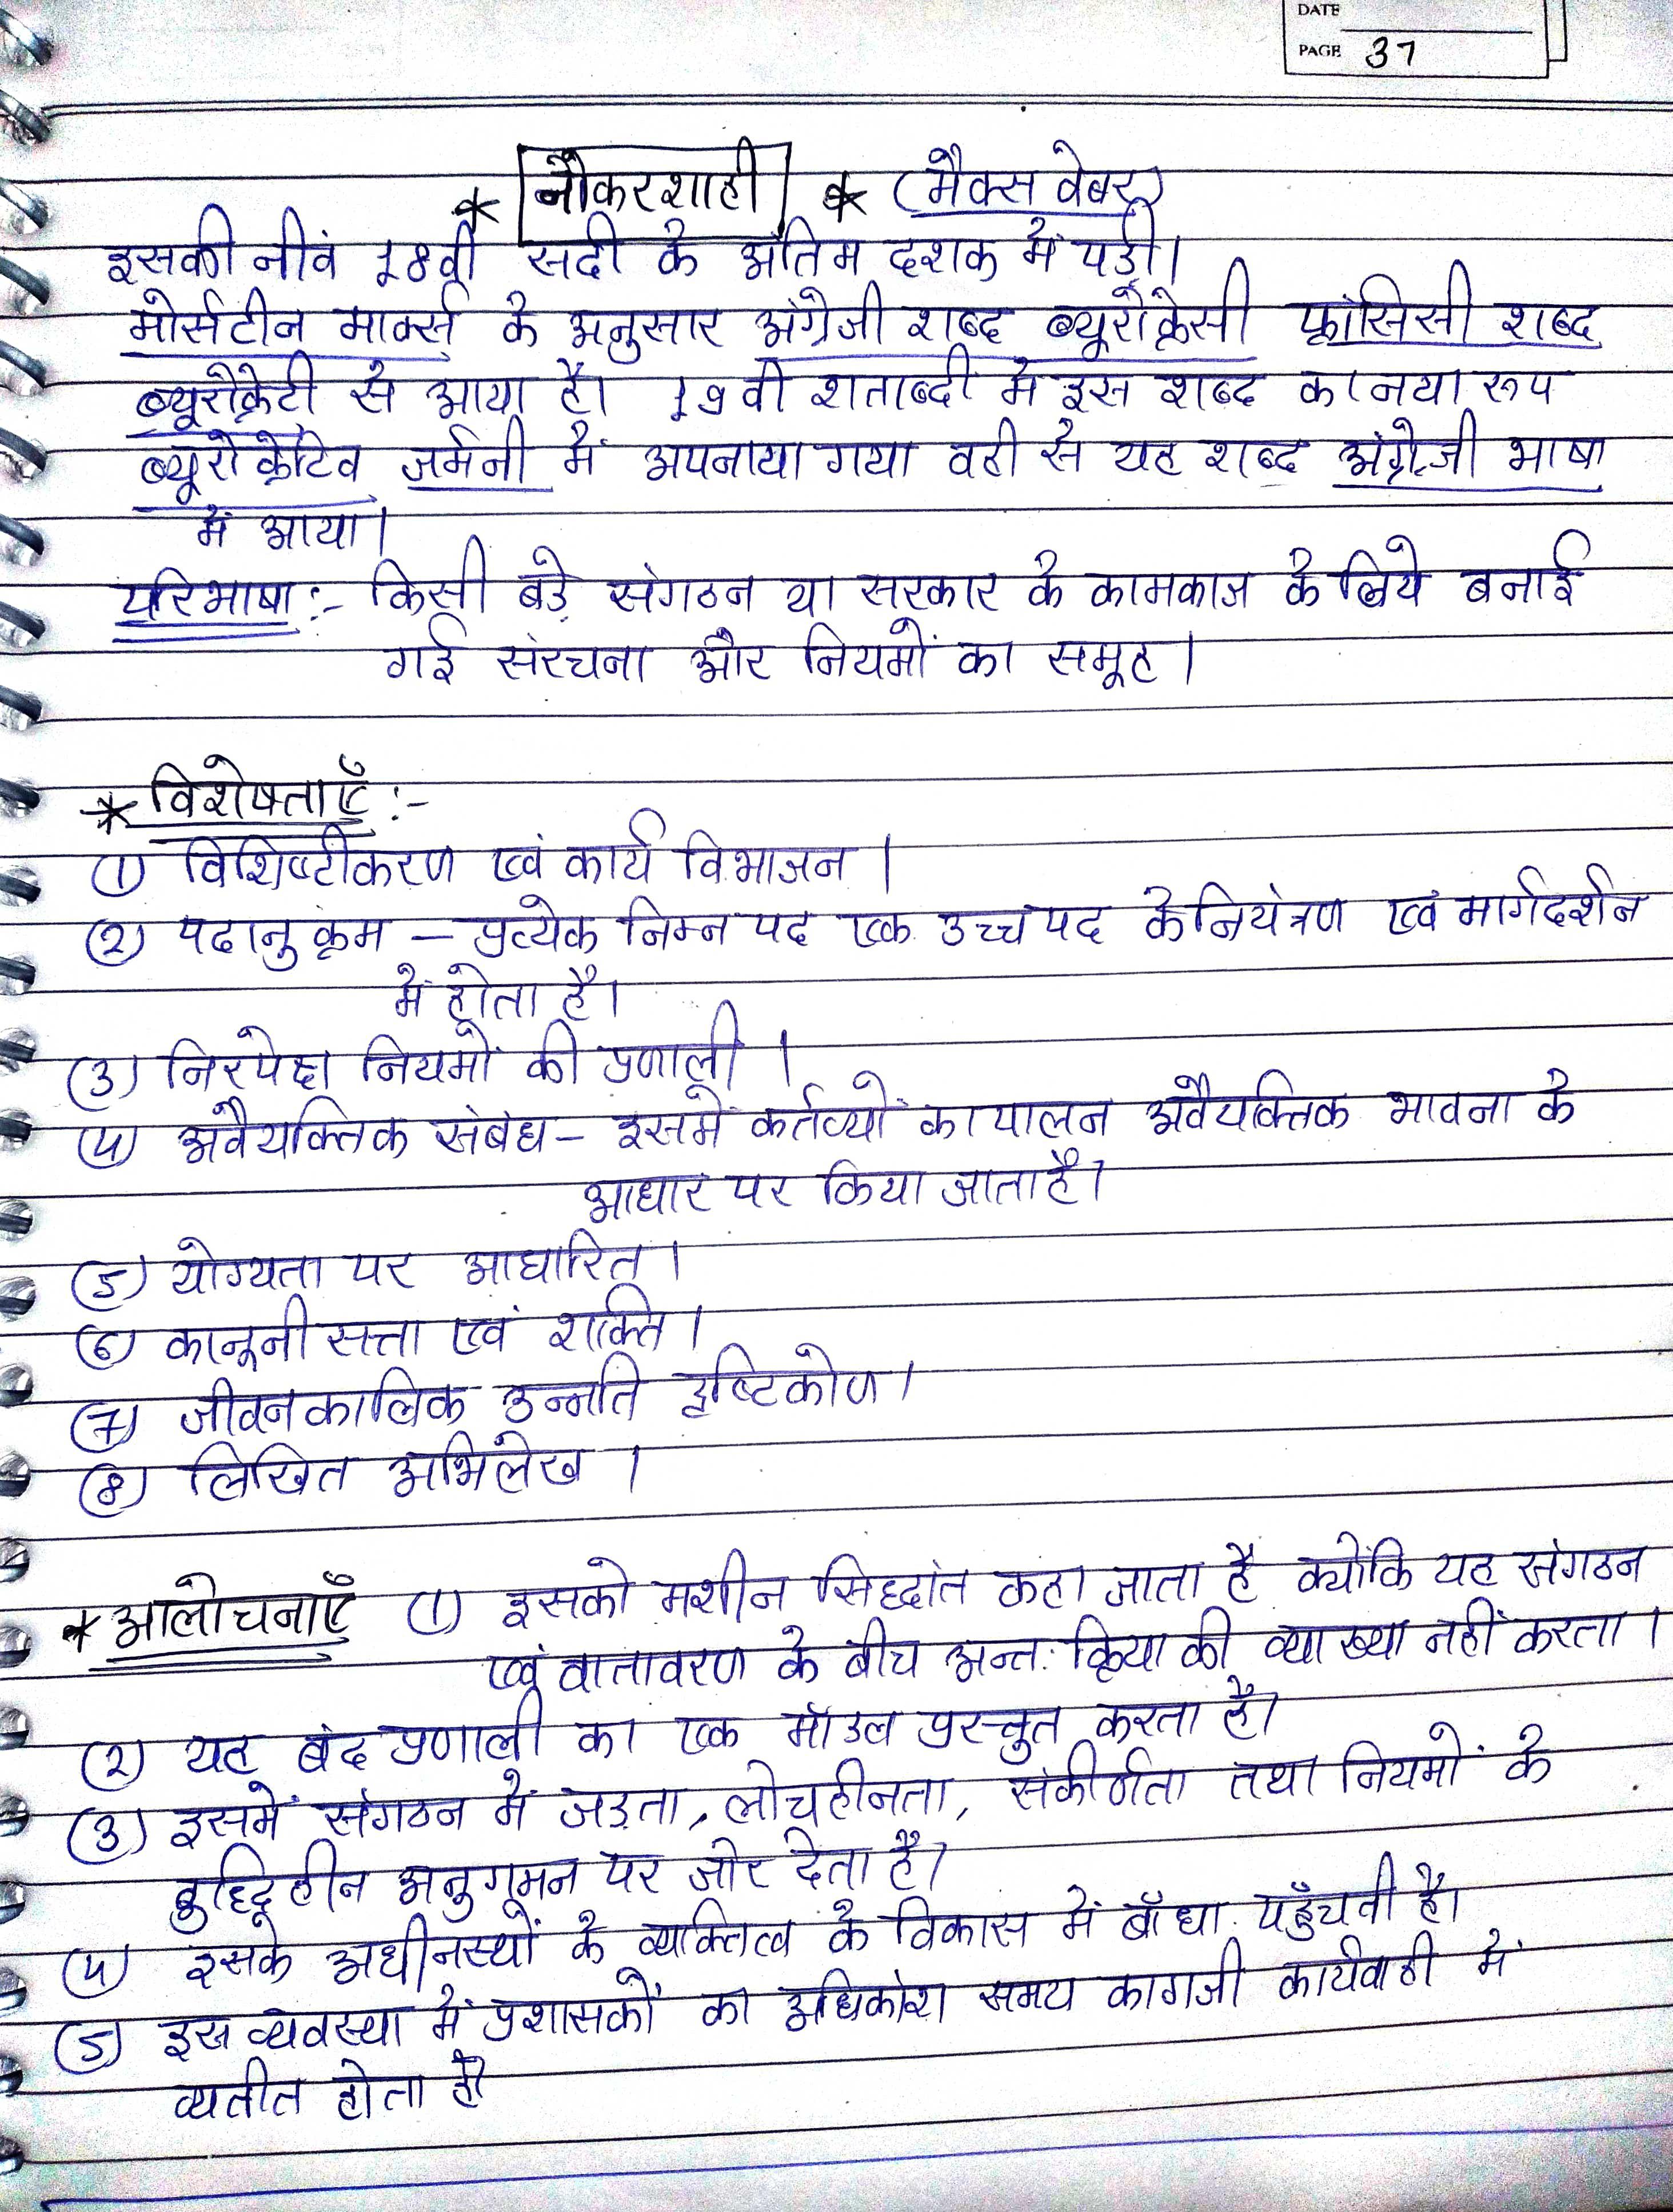 DATE
PAGE 37
* नौकरशाही * (मैक्स वेबर)
इसकी नीवं 18वी सदी के अंतिम दशक में पड़ी।
मोर्सटीन मार्क्स के अनुसार अंग्रेजी शब्द ब्यूरोक्रेसी फ्रांसिसी शब्द
ब्यूरोक्रेटी से आया है। 19वी शताब्दी मे इस शब्द का नया रूप
ब्यूरोक्रेटिव जर्मनी में अपनाया गया वही से यह शब्द अंग्रेजी भाषा
में आया।
परिभाषा :- किसी बड़े संगठन या सरकार के कामकाज के लिये बनाई
गई संरचना और नियमों का समूह।
* विशेषताएँ :-
(1) विशिष्टीकरण एवं कार्य विभाजन।
(2) पदानुक्रम – प्रत्येक निम्न पद एक उच्च पद के नियंत्रण एवं मार्गदर्शन
में होता है।
(3) निरपेक्ष नियमों की प्रणाली।
(4) अवैयक्तिक संबंध – इसमें कर्तव्यों का पालन अवैयक्तिक भावना के
आधार पर किया जाता है।
(5) योग्यता पर आधारित।
(6) कानूनी सत्ता एवं शक्ति।
(7) जीवनकालिक उन्नति दृष्टिकोण।
(8) लिखित अभिलेख।
* आलोचनाएँ (1) इसको मशीन सिद्धांत कहा जाता है क्योंकि यह संगठन
एवं वातावरण के बीच अन्त: क्रिया की व्याख्या नहीं करता।
(2) यह बंद प्रणाली का एक मॉडल प्रस्तुत करता है।
(3) इसमें संगठन में जड़ता, लोचहीनता, संकीर्णता तथा नियमों के
बुद्धिहीन अनुगमन पर जोर देता है।
(4) इसके अधीनस्थों के व्यक्तित्व के विकास में बाँधा पहुँचती है।
(5) इस व्यवस्था में प्रशासकों का अधिकांश समय कागजी कार्यवाही में
व्यतीत होता है